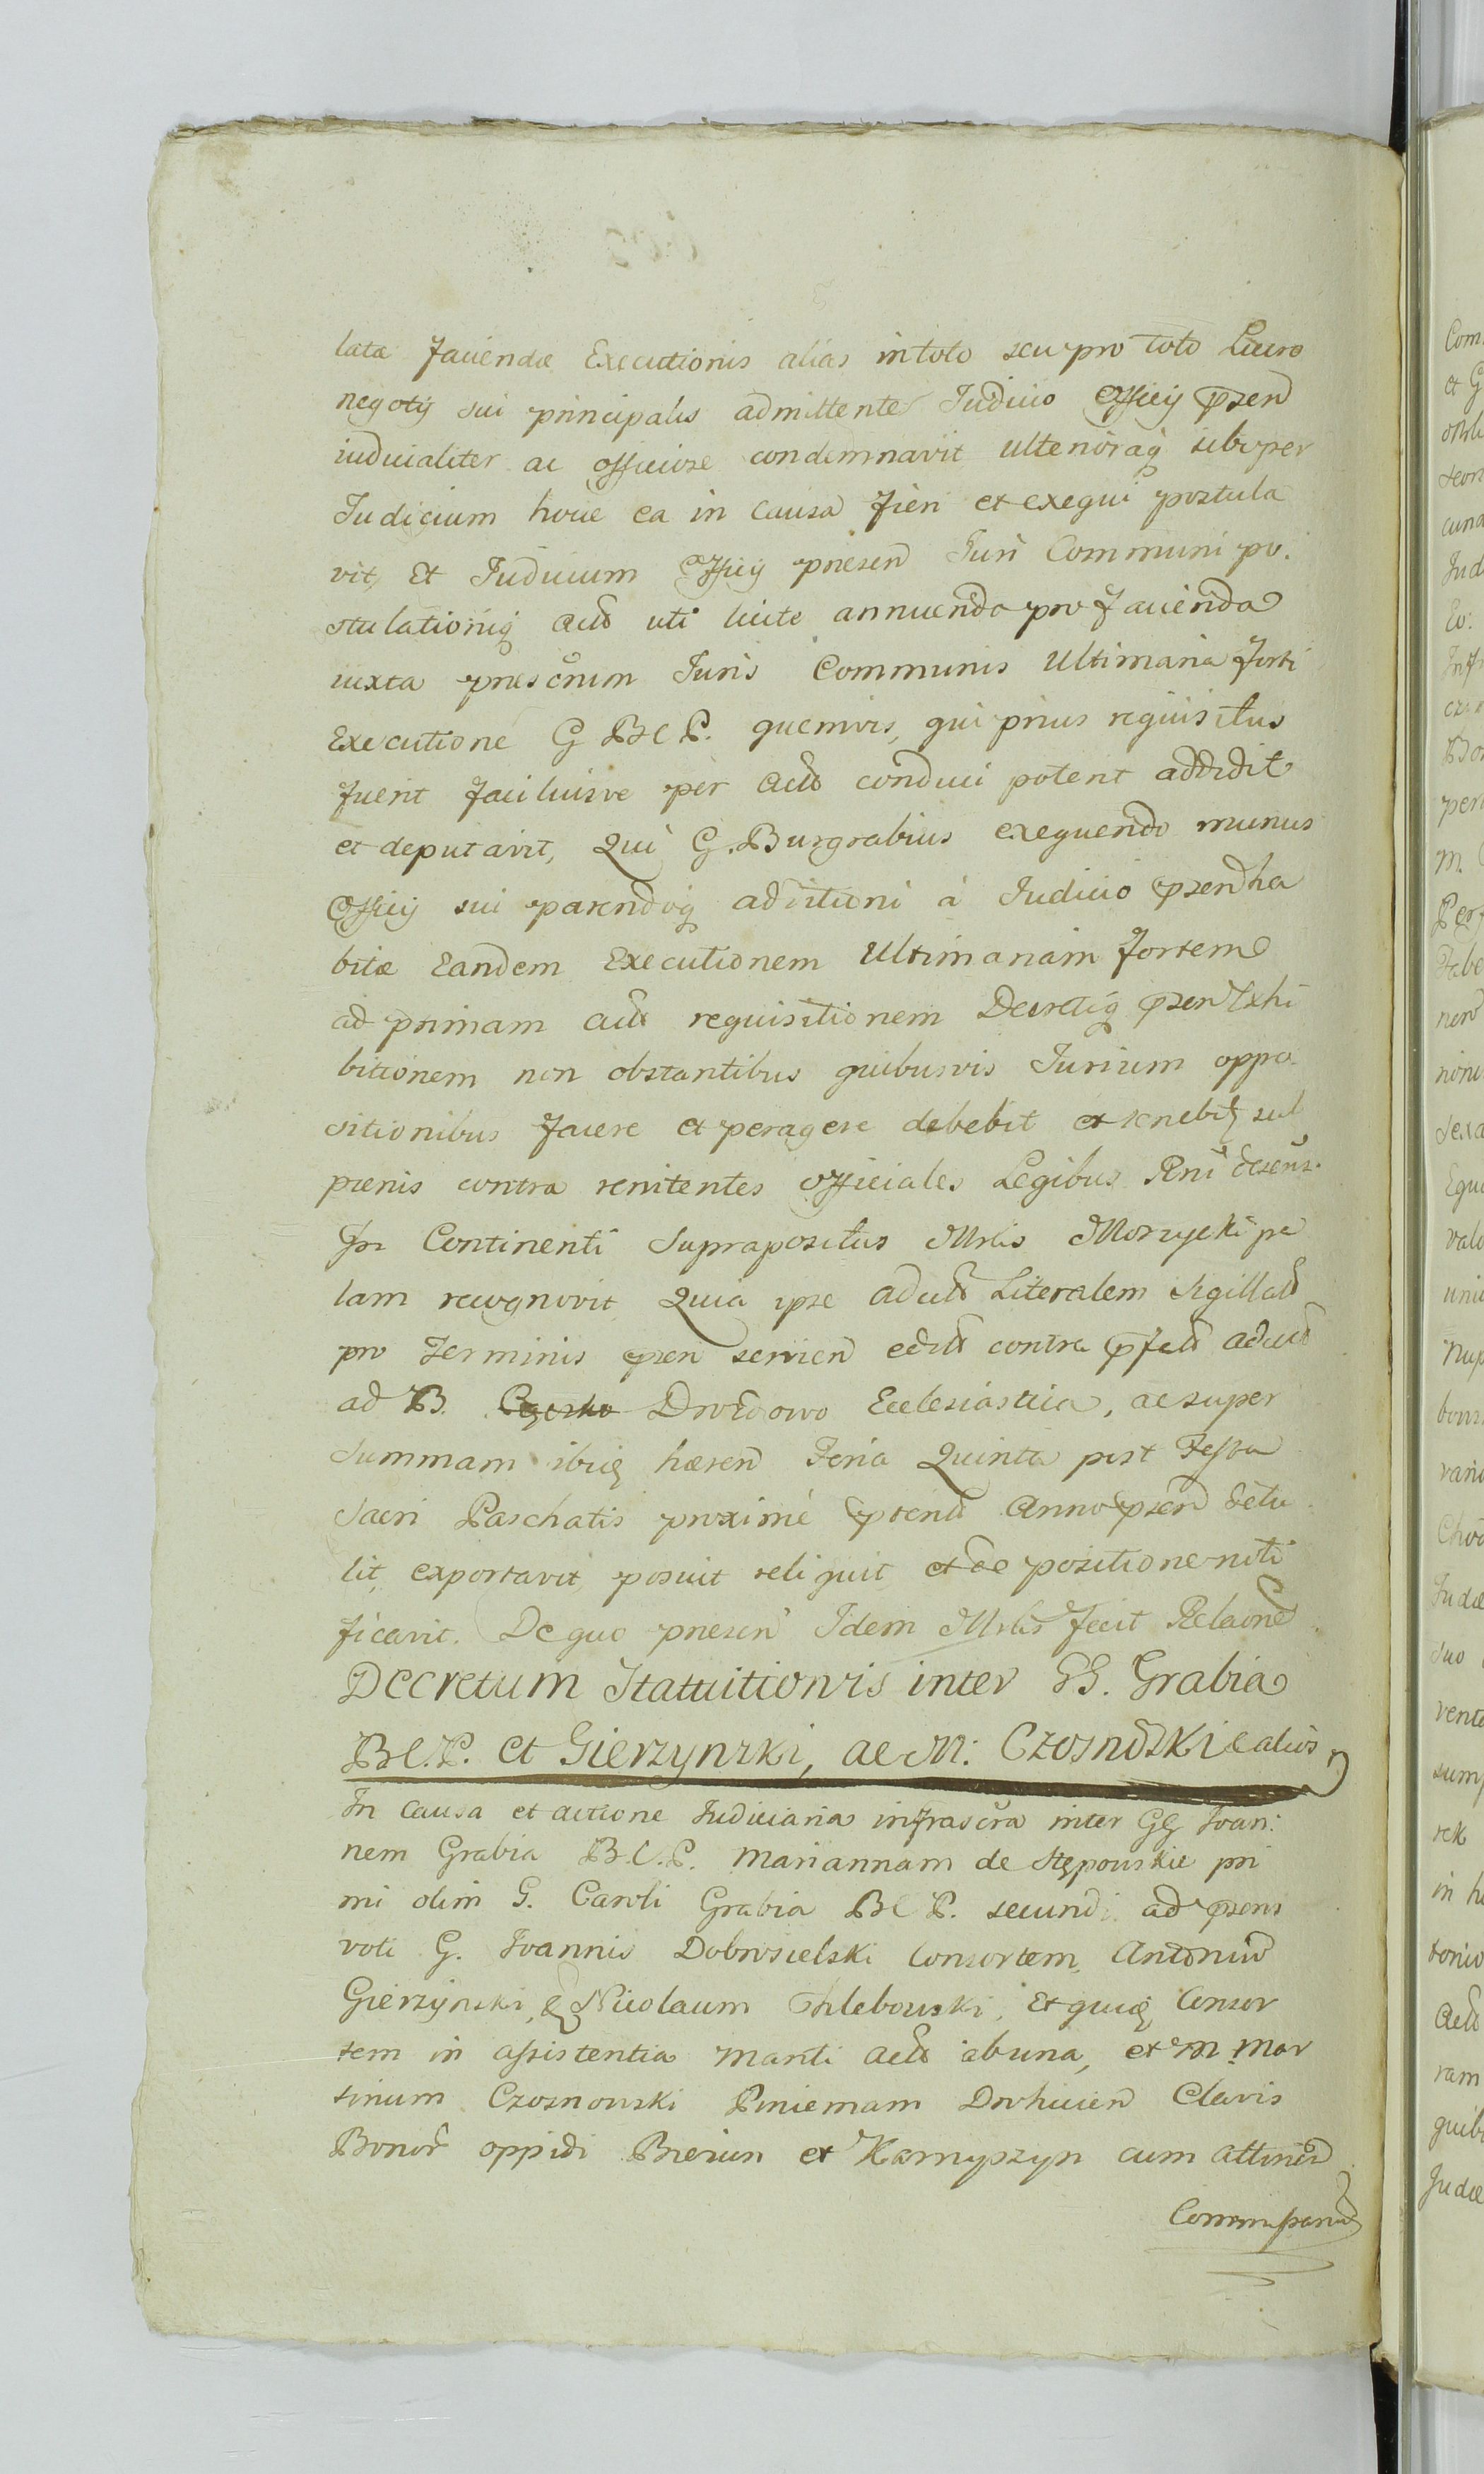 lata faciendæ Executionis alias in toto seu pro toto Lucro
negotÿ sui principalis admittente Judicio Officÿ pzen
iudicialiter ac officiose condemnavit ulterioraq sibi per
Judicium hocce ea in Causa fieri et exequi postula
vit, Et Judicium Officÿ præsen Juri Communi po.
stulationiq Acto uti licite annuendo pro facienda
iuxta præscrum Juris Communis Ultimaria forti
Executione G B C P. quemvis, qui prius requisitus
fuerit faciliusve per Acto conduci poterit addidit
et deputavit, Qui G. Burgrabius exequendo munus
Officÿ sui parendoq additioni à Judicio pzen ha
bitæ Eandem Executionem Ultimariam fortem
ad primam acto requisitionem Decretiq pzen Exhi
bitionem non obstantibus quibusvis Jurium oppo
sitionibus facere et peragere debebit et tenebit sub
pœnis contra renitentes Officiales Legibus Rni descris.
In Continenti Suprapositus Mrlis Morzycki pa
lam recognovit Quia ipse adcito Literalem Sigillato
pro Terminis pzen servien edito contra pfato adcito
ad B. Drozdowo Ecclesiastica, ac super
Summam ibiq hæren Feria Quinta post Festa
Sacri Paschatis proximè pterito Anno pzen detu
lit, exportavit, posuit reliquit et de positione noti
ficavit. De quo præsen Idem Mrlis fecit Relaone
Decretum Statuitionis inter GG. Grabia
B.C.P. et Gierzynski, ac M: Czosnowski e alios
In Causa et actione Judiciaria infrascra inter GG Joan:
nem Grabia B.C.P. Mariannam de Stępowskie pri
mi olim G. Caroli Grabia B C P. secundi ad pzens
voti G. Joannis Dobrosielski Consortem, Antonium
Gierzynski, & Nicolaum Chlebowski, Et quiq Consor
tem in assistentia Mariti acto ab una, et M Mar
tinum Czosnowski Pincernam Drohicien Clavis
Bonor oppidi Biezun et Karnyszyn cum attinen